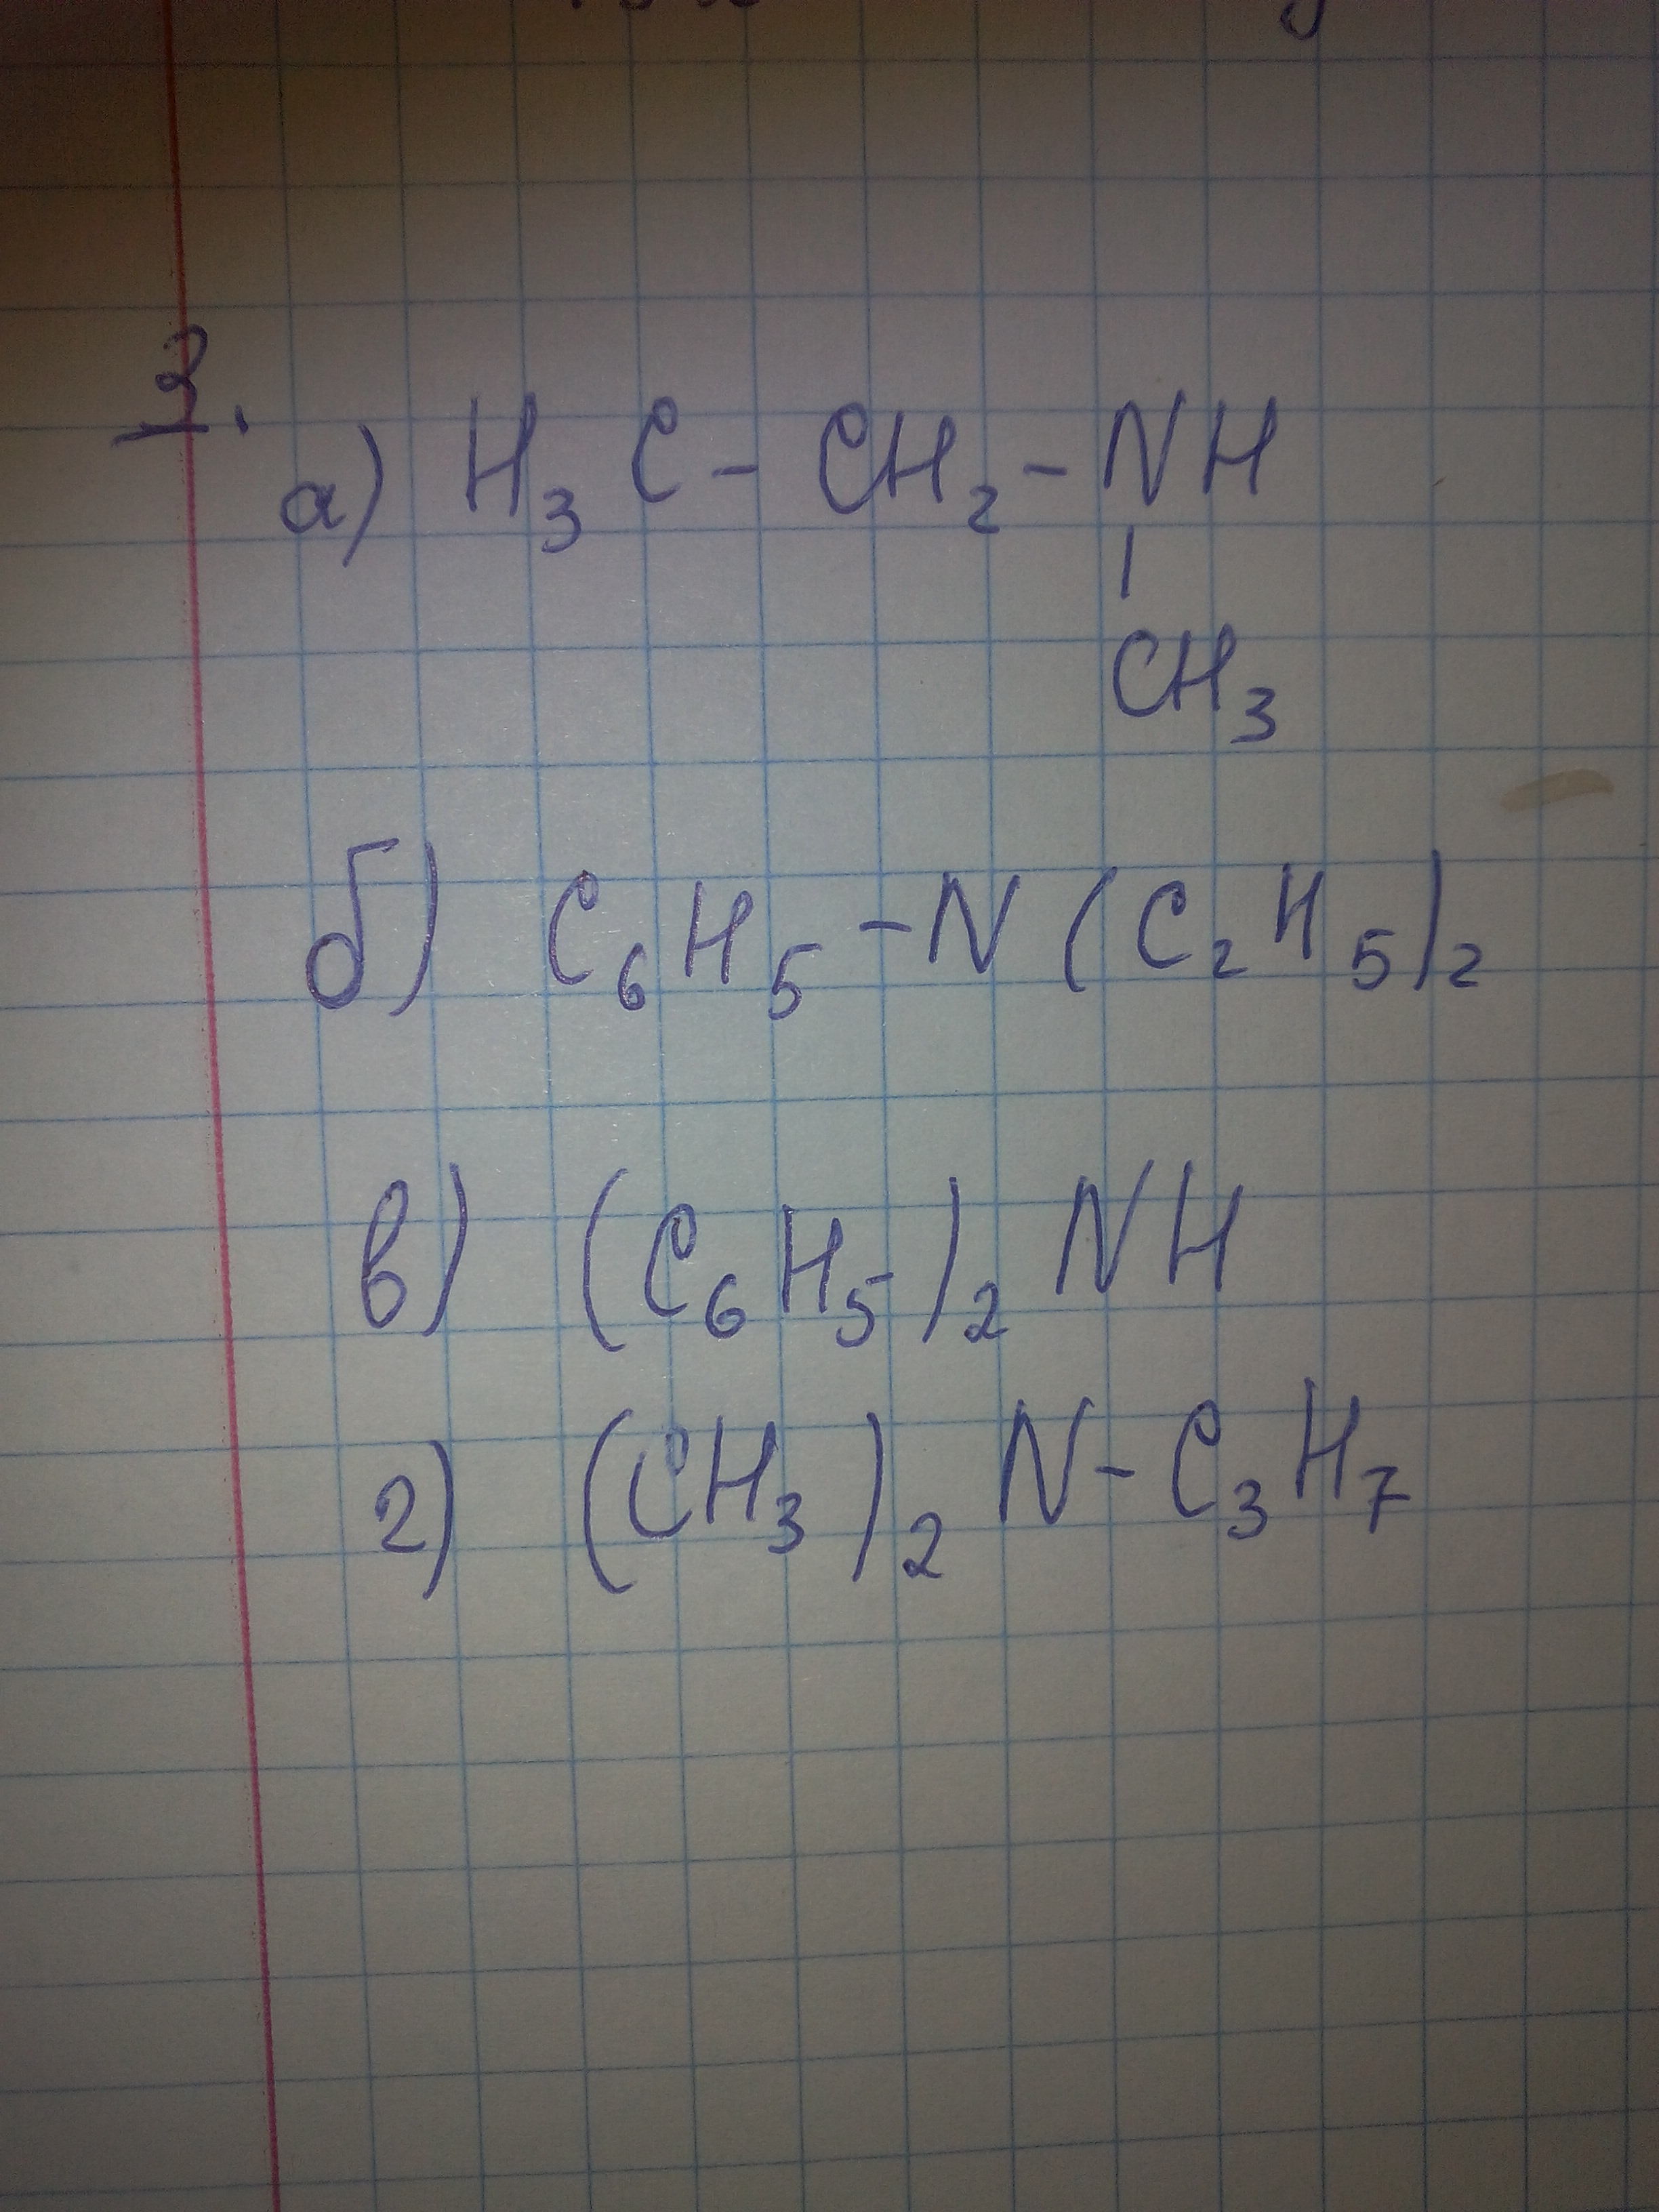 3.
а) H₃C - CH₂ - NH
|
CH₃
б) C₆H₅ - N(C₂H₅)₂
в) (C₆H₅)₂NH
г) (CH₃)₂N - C₃H₇